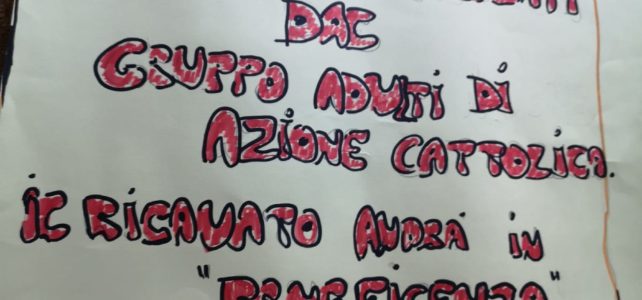 DAL
GRUPPO ADULTI DI
AZIONE CATTOLICA.
IL RICAVATO ANDRÀ IN
"BENEFICENZA"